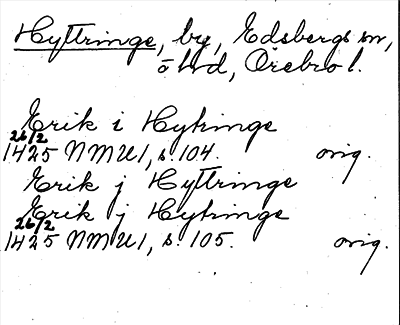 Hyttringe, by, Edsbergs sn,
ö hd, Örebro l.
Erik i Hytringe
26/2
1425 NMU1, s. 104. orig.
Erik j Hyttringe
Erik j Hytringe
26/2
1425 NMU1, s. 105. orig.